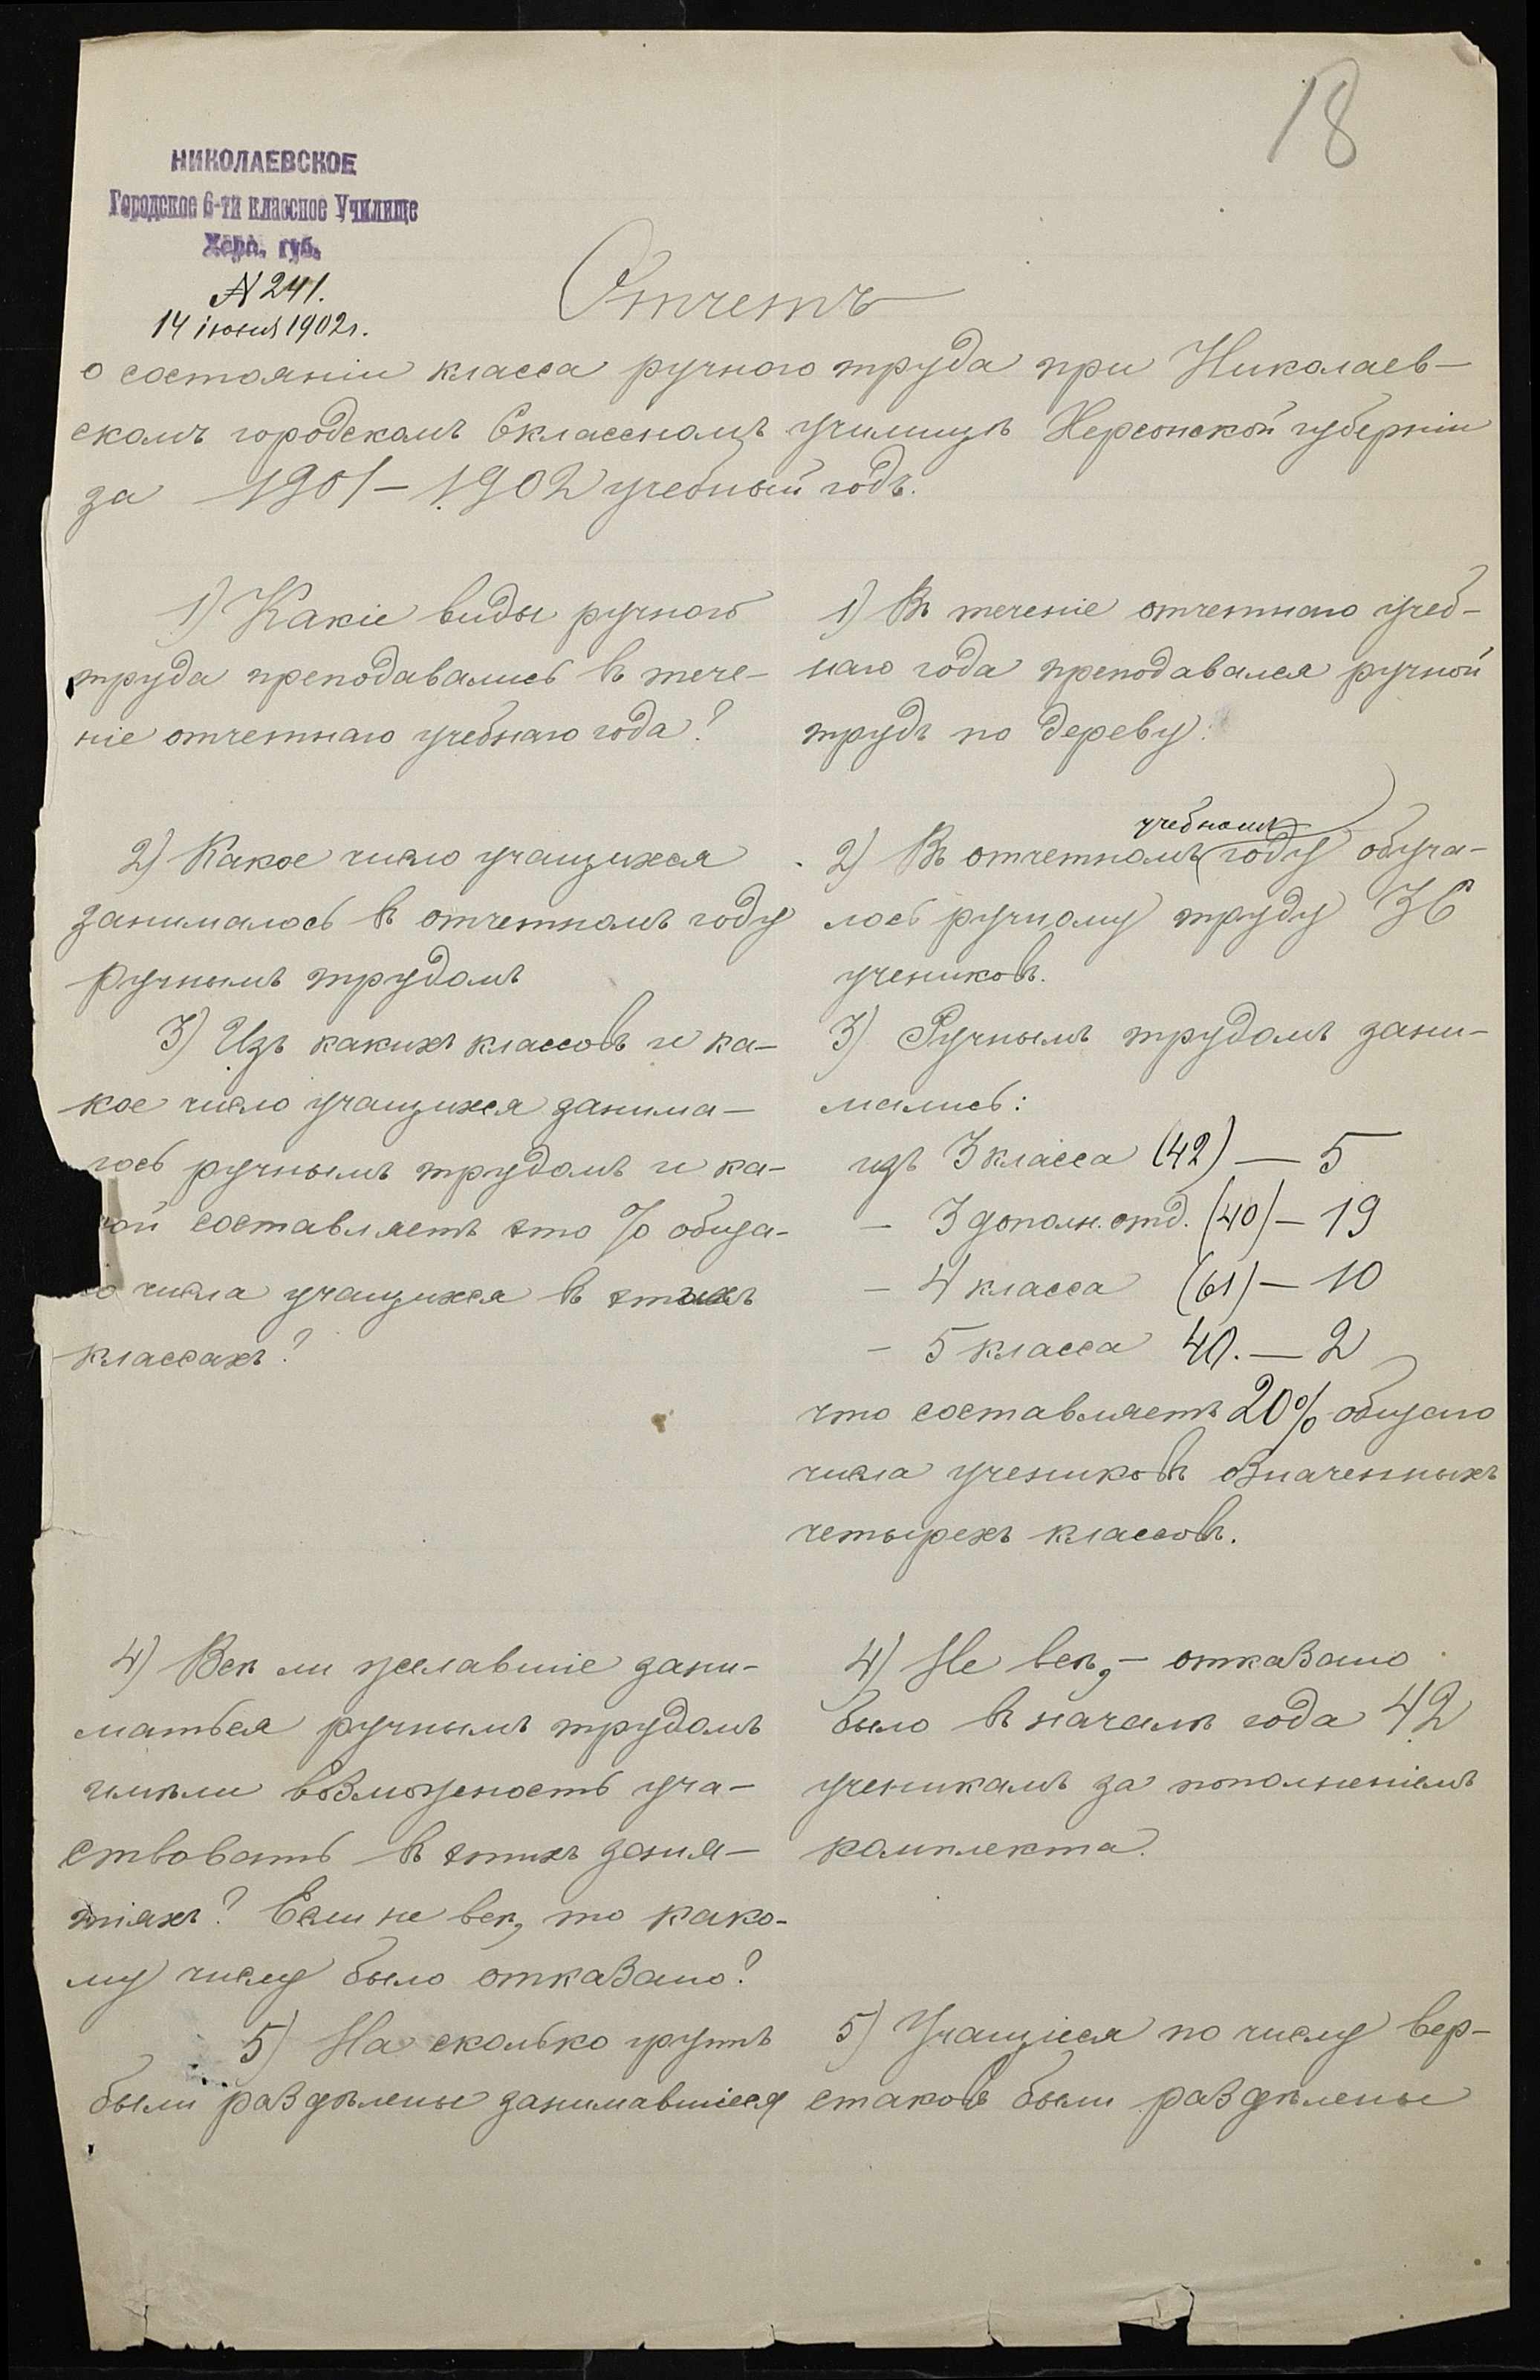 18
НИКОЛАЕВСКОЕ
Городское 6-ти классное Училище
Херс. губ.
№ 241.
14 іюня 1902 г.
Отчетъ
о состояніи класса ручного труда при Николаев-
скомъ городскомъ 6классномъ училищѣ Херсонской губерніи
за 1901-1902 учебный годъ.
1) Какіе виды ручного
труда преподавались въ тече-
ніе отчетнаго учебнаго года?
1) Въ теченіе отчетнаго учеб-
наго года преподавался ручной
трудъ по дереву.
2) Какое число учащихся
занималось въ отчетномъ году
ручнымъ трудомъ
2) Въ отчетномъ учебномъ году обуча-
лось ручному труду 36
учениковъ.
3) Изъ какихъ классовъ и ка-
кое число учащихся занима-
лось ручнымъ трудомъ и ка-
кой составляетъ это % обща-
го числа учащихся въ этихъ
классахъ?
3) Ручнымъ трудомъ зани-
мались:
изъ 3 класса (42) — 5
— 3 дополн. отд. (40) — 19
— 4 класса (61) — 10
— 5 класса 40. — 2
что составляетъ 20% общаго
числа учениковъ означенныхъ
четырехъ классовъ.
4) Всѣ ли желавшіе зани-
маться ручнымъ трудомъ
имѣли возможность уча-
ствовать въ этихъ заня-
тіяхъ? Если не всѣ, то како-
му числу было отказано?
4) Не всѣ, — отказано
было въ началѣ года 42
ученикамъ за пополненіемъ
комплекта.
5) На сколько группъ
были раздѣлены занимавшіеся
5) Учащіеся по числу вер-
стаковъ были раздѣлены